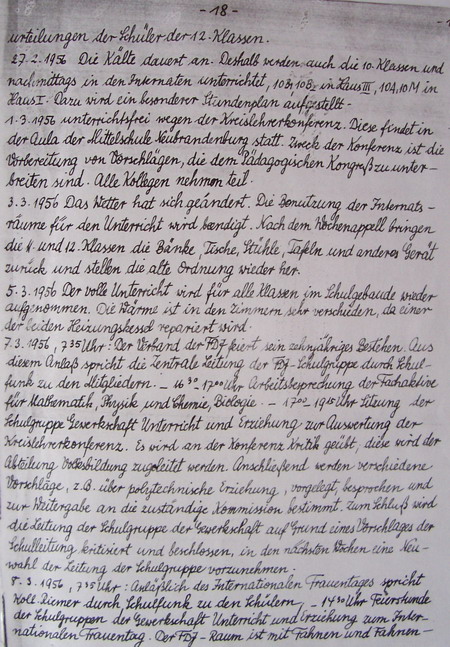 - 18 -
urteilungen der Schüler der 12. Klassen.
27.2.1956 Die Kälte dauert an. Deshalb werden auch die 10. Klassen und
nachmittags in den Internaten unterrichtet, 10B1 10B2 in Haus III, 10A, 10M in
Haus I. Dazu wird ein besonderer Stundenplan aufgestellt.
1.3.1956 unterrichtsfrei wegen der Kreislehrerkonferenz. Diese findet in
der Aula der Mittelschule Neubrandenburg statt. Zweck der Konferenz ist die
Vorbereitung von Vorschlägen, die dem Pädagogischen Kongreß zu unter-
breiten sind. Alle Kollegen nehmen teil.
3.3.1956 Das Wetter hat sich geändert. Die Benutzung der Internats-
räume für den Unterricht wird beendigt. Nach dem Wochenappell bringen
die 11. und 12. Klassen die Bänke, Tische, Stühle, Tafeln und anderes Gerät
zurück und stellen die alte Ordnung wieder her.
5.3.1956 Der volle Unterricht wird für alle Klassen im Schulgebäude wieder
aufgenommen. Die Wärme ist in den Zimmern sehr verschieden, da einer
der beiden Heizungskessel repariert wird.
7.3.1956, 7 35 Uhr: Der Verband der FDJ feiert sein zehnjähriges Bestehen. Aus
diesem Anlaß spricht die Zentrale Leitung der FDJ-Schulgruppe durch Schul-
funk zu den Mitgliedern. - 16 30 - 17 00 Uhr Arbeitsbesprechung der Fachaktive
für Mathematik, Physik und Chemie, Biologie. - 17 00 - 19 15 Uhr Sitzung der
Schulgruppe Gewerkschaft Unterricht und Erziehung zur Auswertung der
Kreislehrerkonferenz. Es wird an der Konferenz Kritik geübt, diese wird der
Abteilung Volksbildung zugeleitet werden. Anschließend werden verschiedene
Vorschläge, z.B. über polytechnische Erziehung, vorgelegt, besprochen und
zur Weitergabe an die zuständige Kommission bestimmt. Zum Schluß wird
die Leitung der Schulgruppe der Gewerkschaft auf Grund eines Vorschlages der
Schulleitung kritisiert und beschlossen, in den nächsten Wochen eine Neu-
wahl der Leitung der Schulgruppe vorzunehmen.
8.3.1956, 7 35 Uhr: Anläßlich des Internationalen Frauentages spricht
Koll. Riemer durch Schulfunk zu den Schülern, - 14 30 Uhr Feierstunde
der Schulgruppen der Gewerkschaft Unterricht und Erziehung zum Inter-
nationalen Frauentag. Der FDJ-Raum ist mit Fahnen und Fahnen-